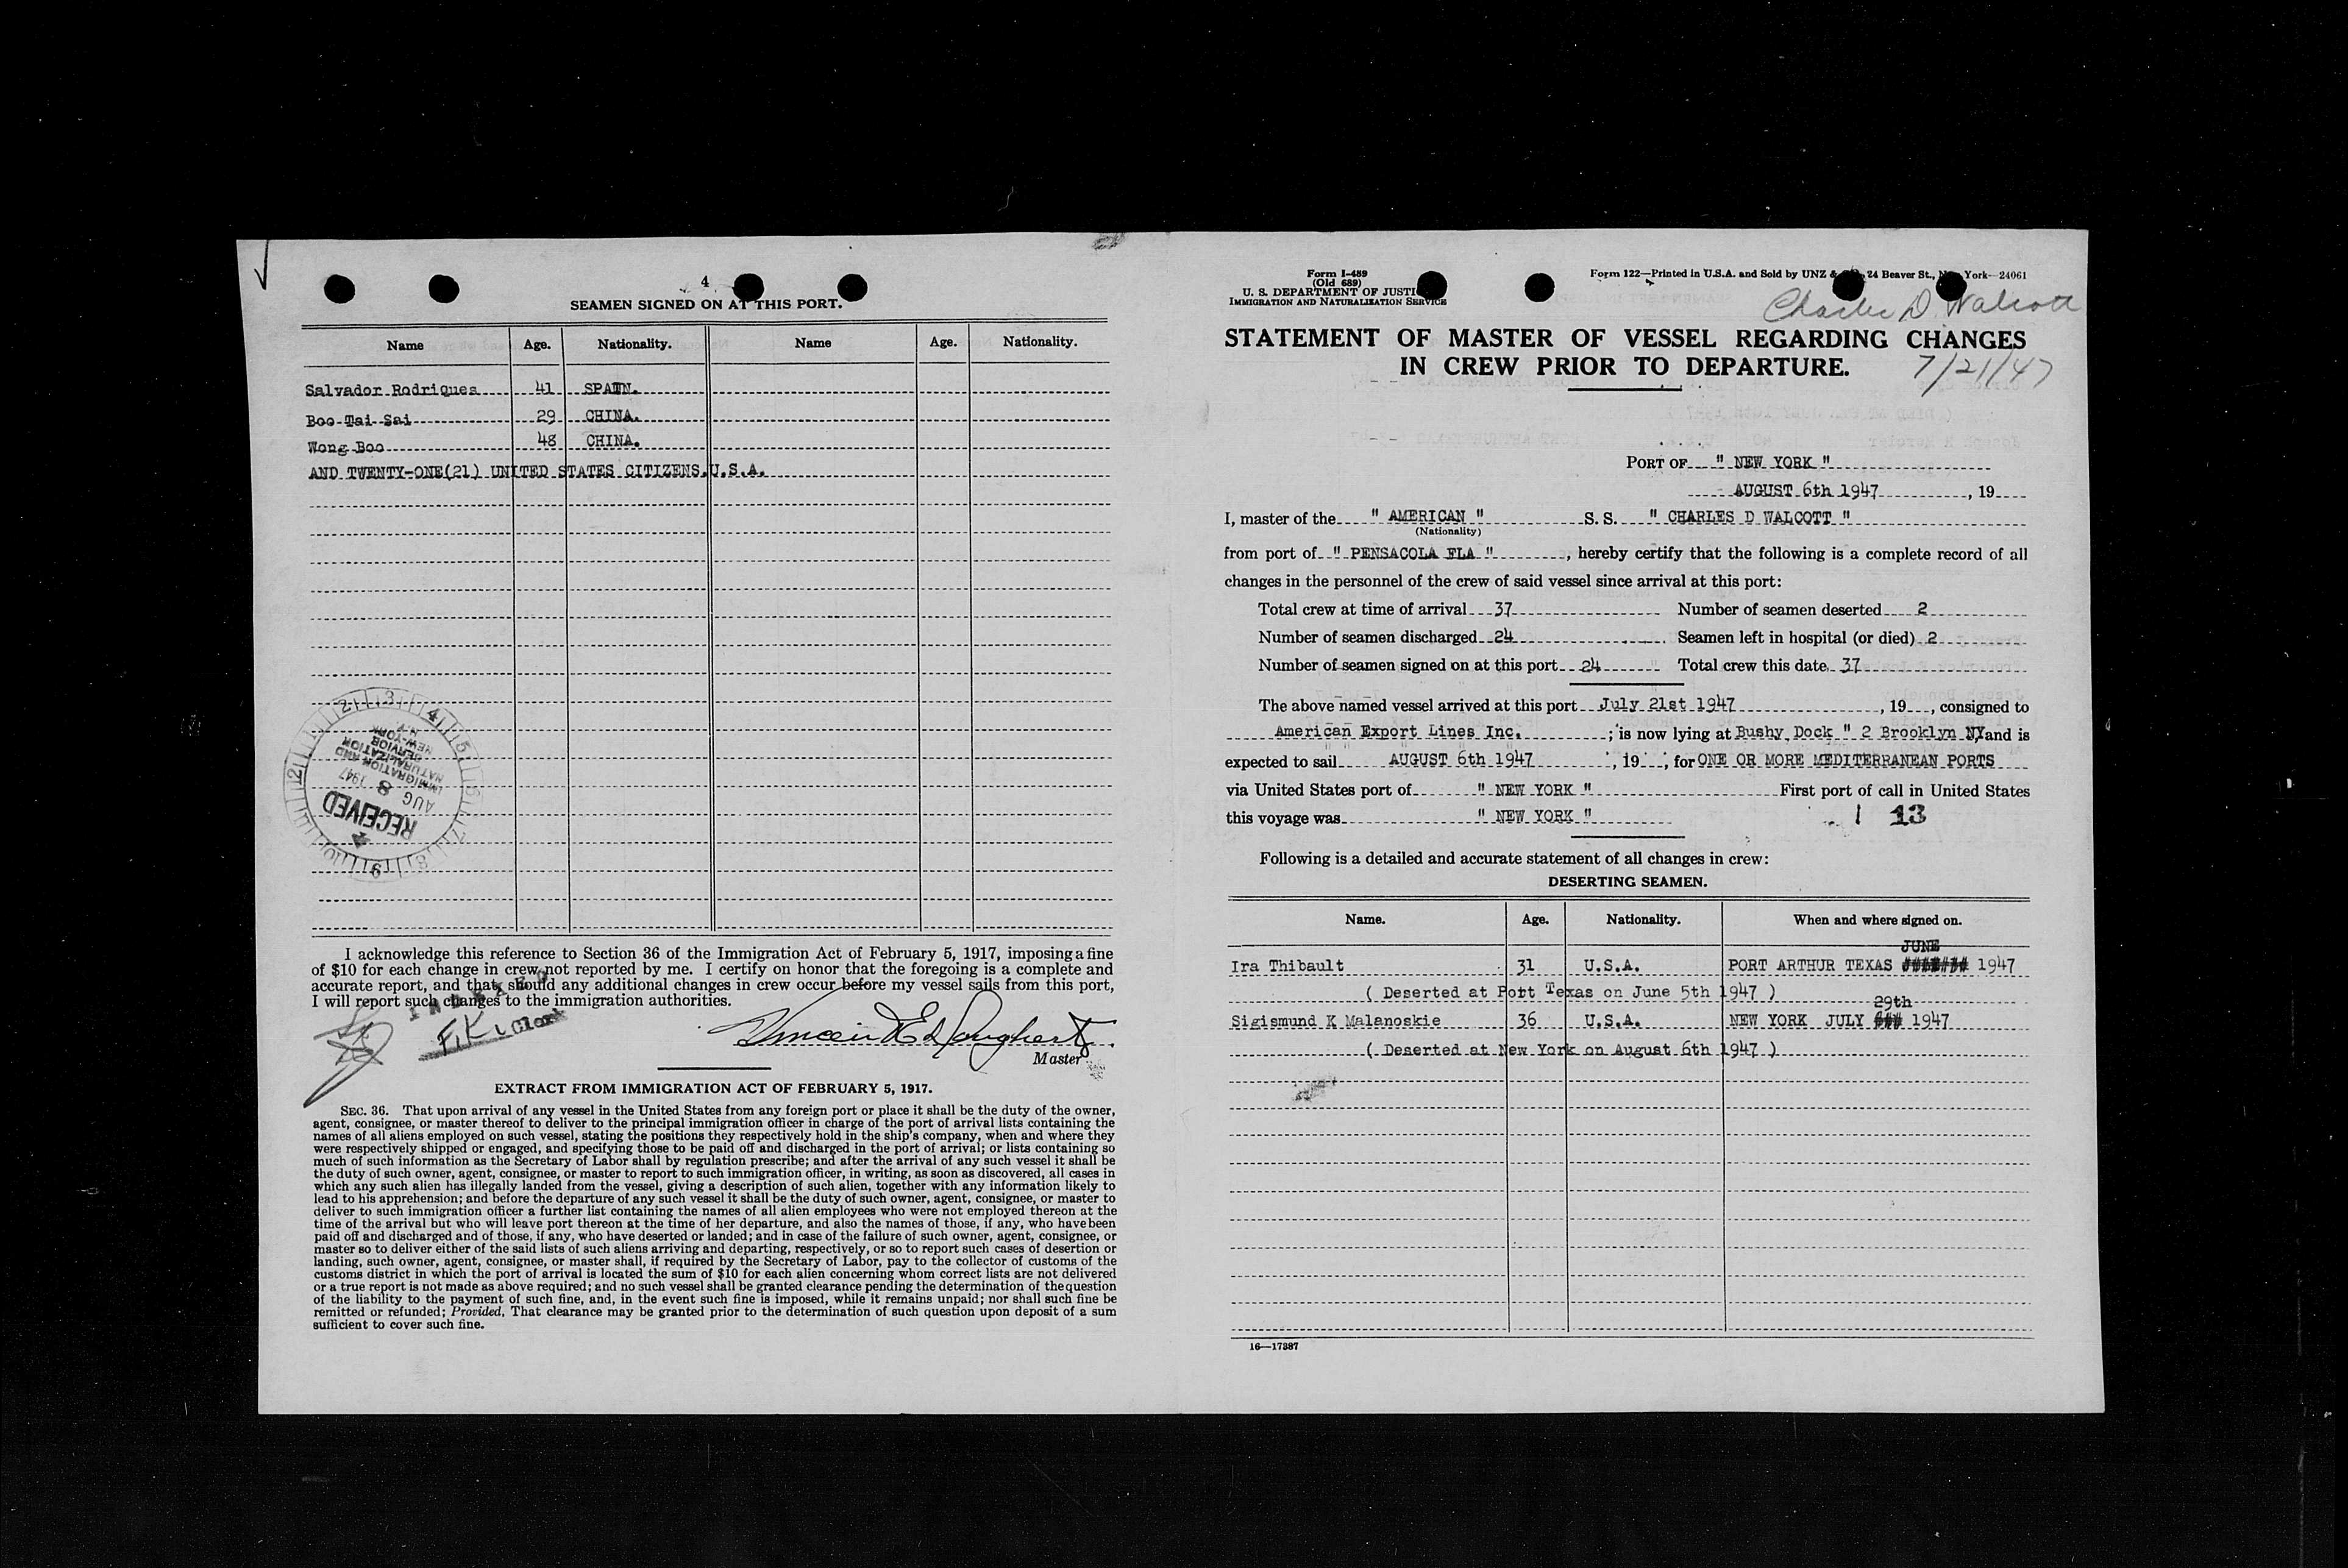 4
SEAMEN SIGNED ON AT THIS PORT.
Name Age. Nationality. Name Age. Nationality.
Salvador Rodriques 41 SPAIN.
Boo Tai Sai 29 CHINA.
Wong Boo 48 CHINA.
AND TWENTY-ONE(21) UNITED STATES CITIZENS.U.S.A.
RECEIVED
AUG 8 1947
IMMIGRATION AND
NATURALIZATION
SERVICE
NEW YORK
N.Y.
I acknowledge this reference to Section 36 of the Immigration Act of February 5, 1917, imposing a fine
of $10 for each change in crew not reported by me. I certify on honor that the foregoing is a complete and
accurate report, and that, should any additional changes in crew occur before my vessel sails from this port,
I will report such changes to the immigration authorities.
F.K. Clerk
Vincent E Dougherty
Master
EXTRACT FROM IMMIGRATION ACT OF FEBRUARY 5, 1917.
SEC. 36. That upon arrival of any vessel in the United States from any foreign port or place it shall be the duty of the owner,
agent, consignee, or master thereof to deliver to the principal immigration officer in charge of the port of arrival lists containing the
names of all aliens employed on such vessel, stating the positions they respectively hold in the ship's company, when and where they
were respectively shipped or engaged, and specifying those to be paid off and discharged in the port of arrival; or lists containing so
much of such information as the Secretary of Labor shall by regulation prescribe; and after the arrival of any such vessel it shall be
the duty of such owner, agent, consignee, or master to report to such immigration officer, in writing, as soon as discovered, all cases in
which any such alien has illegally landed from the vessel, giving a description of such alien, together with any information likely to
lead to his apprehension; and before the departure of any such vessel it shall be the duty of such owner, agent, consignee, or master to
deliver to such immigration officer a further list containing the names of all alien employees who were not employed thereon at the
time of the arrival but who will leave port thereon at the time of her departure, and also the names of those, if any, who have been
paid off and discharged and of those, if any, who have deserted or landed; and in case of the failure of such owner, agent, consignee, or
master so to deliver either of the said lists of such aliens arriving and departing, respectively, or so to report such cases of desertion or
landing, such owner, agent, consignee, or master shall, if required by the Secretary of Labor, pay to the collector of customs of the
customs district in which the port of arrival is located the sum of $10 for each alien concerning whom correct lists are not delivered
or a true report is not made as above required; and no such vessel shall be granted clearance pending the determination of the question
of the liability to the payment of such fine, and, in the event such fine is imposed, while it remains unpaid; nor shall such fine be
remitted or refunded; Provided, That clearance may be granted prior to the determination of such question upon deposit of a sum
sufficient to cover such fine.
Form I-489
(Old 689)
U. S. DEPARTMENT OF JUSTI
IMMIGRATION AND NATURALIZATION SERVICE
Form 122—Printed in U.S.A. and Sold by UNZ & 24 Beaver St., New York—24061
Charles D Walcott
STATEMENT OF MASTER OF VESSEL REGARDING CHANGES
IN CREW PRIOR TO DEPARTURE.
7/21/47
PORT OF " NEW YORK "
AUGUST 6th 1947, 19
I, master of the " AMERICAN " S. S. " CHARLES D WALCOTT "
(Nationality)
from port of " PENSACOLA FLA ", hereby certify that the following is a complete record of all
changes in the personnel of the crew of said vessel since arrival at this port:
Total crew at time of arrival 37 Number of seamen deserted 2
Number of seamen discharged 24 Seamen left in hospital (or died) 2
Number of seamen signed on at this port 24 Total crew this date 37
The above named vessel arrived at this port July 21st 1947, 19, consigned to
American Export Lines Inc. ; is now lying at Bushy Dock " 2 Brooklyn NY and is
expected to sail AUGUST 6th 1947, 19 ; for ONE OR MORE MEDITERRANEAN PORTS
via United States port of " NEW YORK " First port of call in United States
this voyage was " NEW YORK "
1 13
Following is a detailed and accurate statement of all changes in crew:
DESERTING SEAMEN.
Name. Age. Nationality. When and where signed on.
JUNE
Ira Thibault 31 U.S.A. PORT ARTHUR TEXAS ####### 1947
( Deserted at Port Texas on June 5th 1947 )
29th
Sigismund K Malanoskie 36 U.S.A. NEW YORK JULY ### 1947
( Deserted at New York on August 6th 1947 )
16—17387